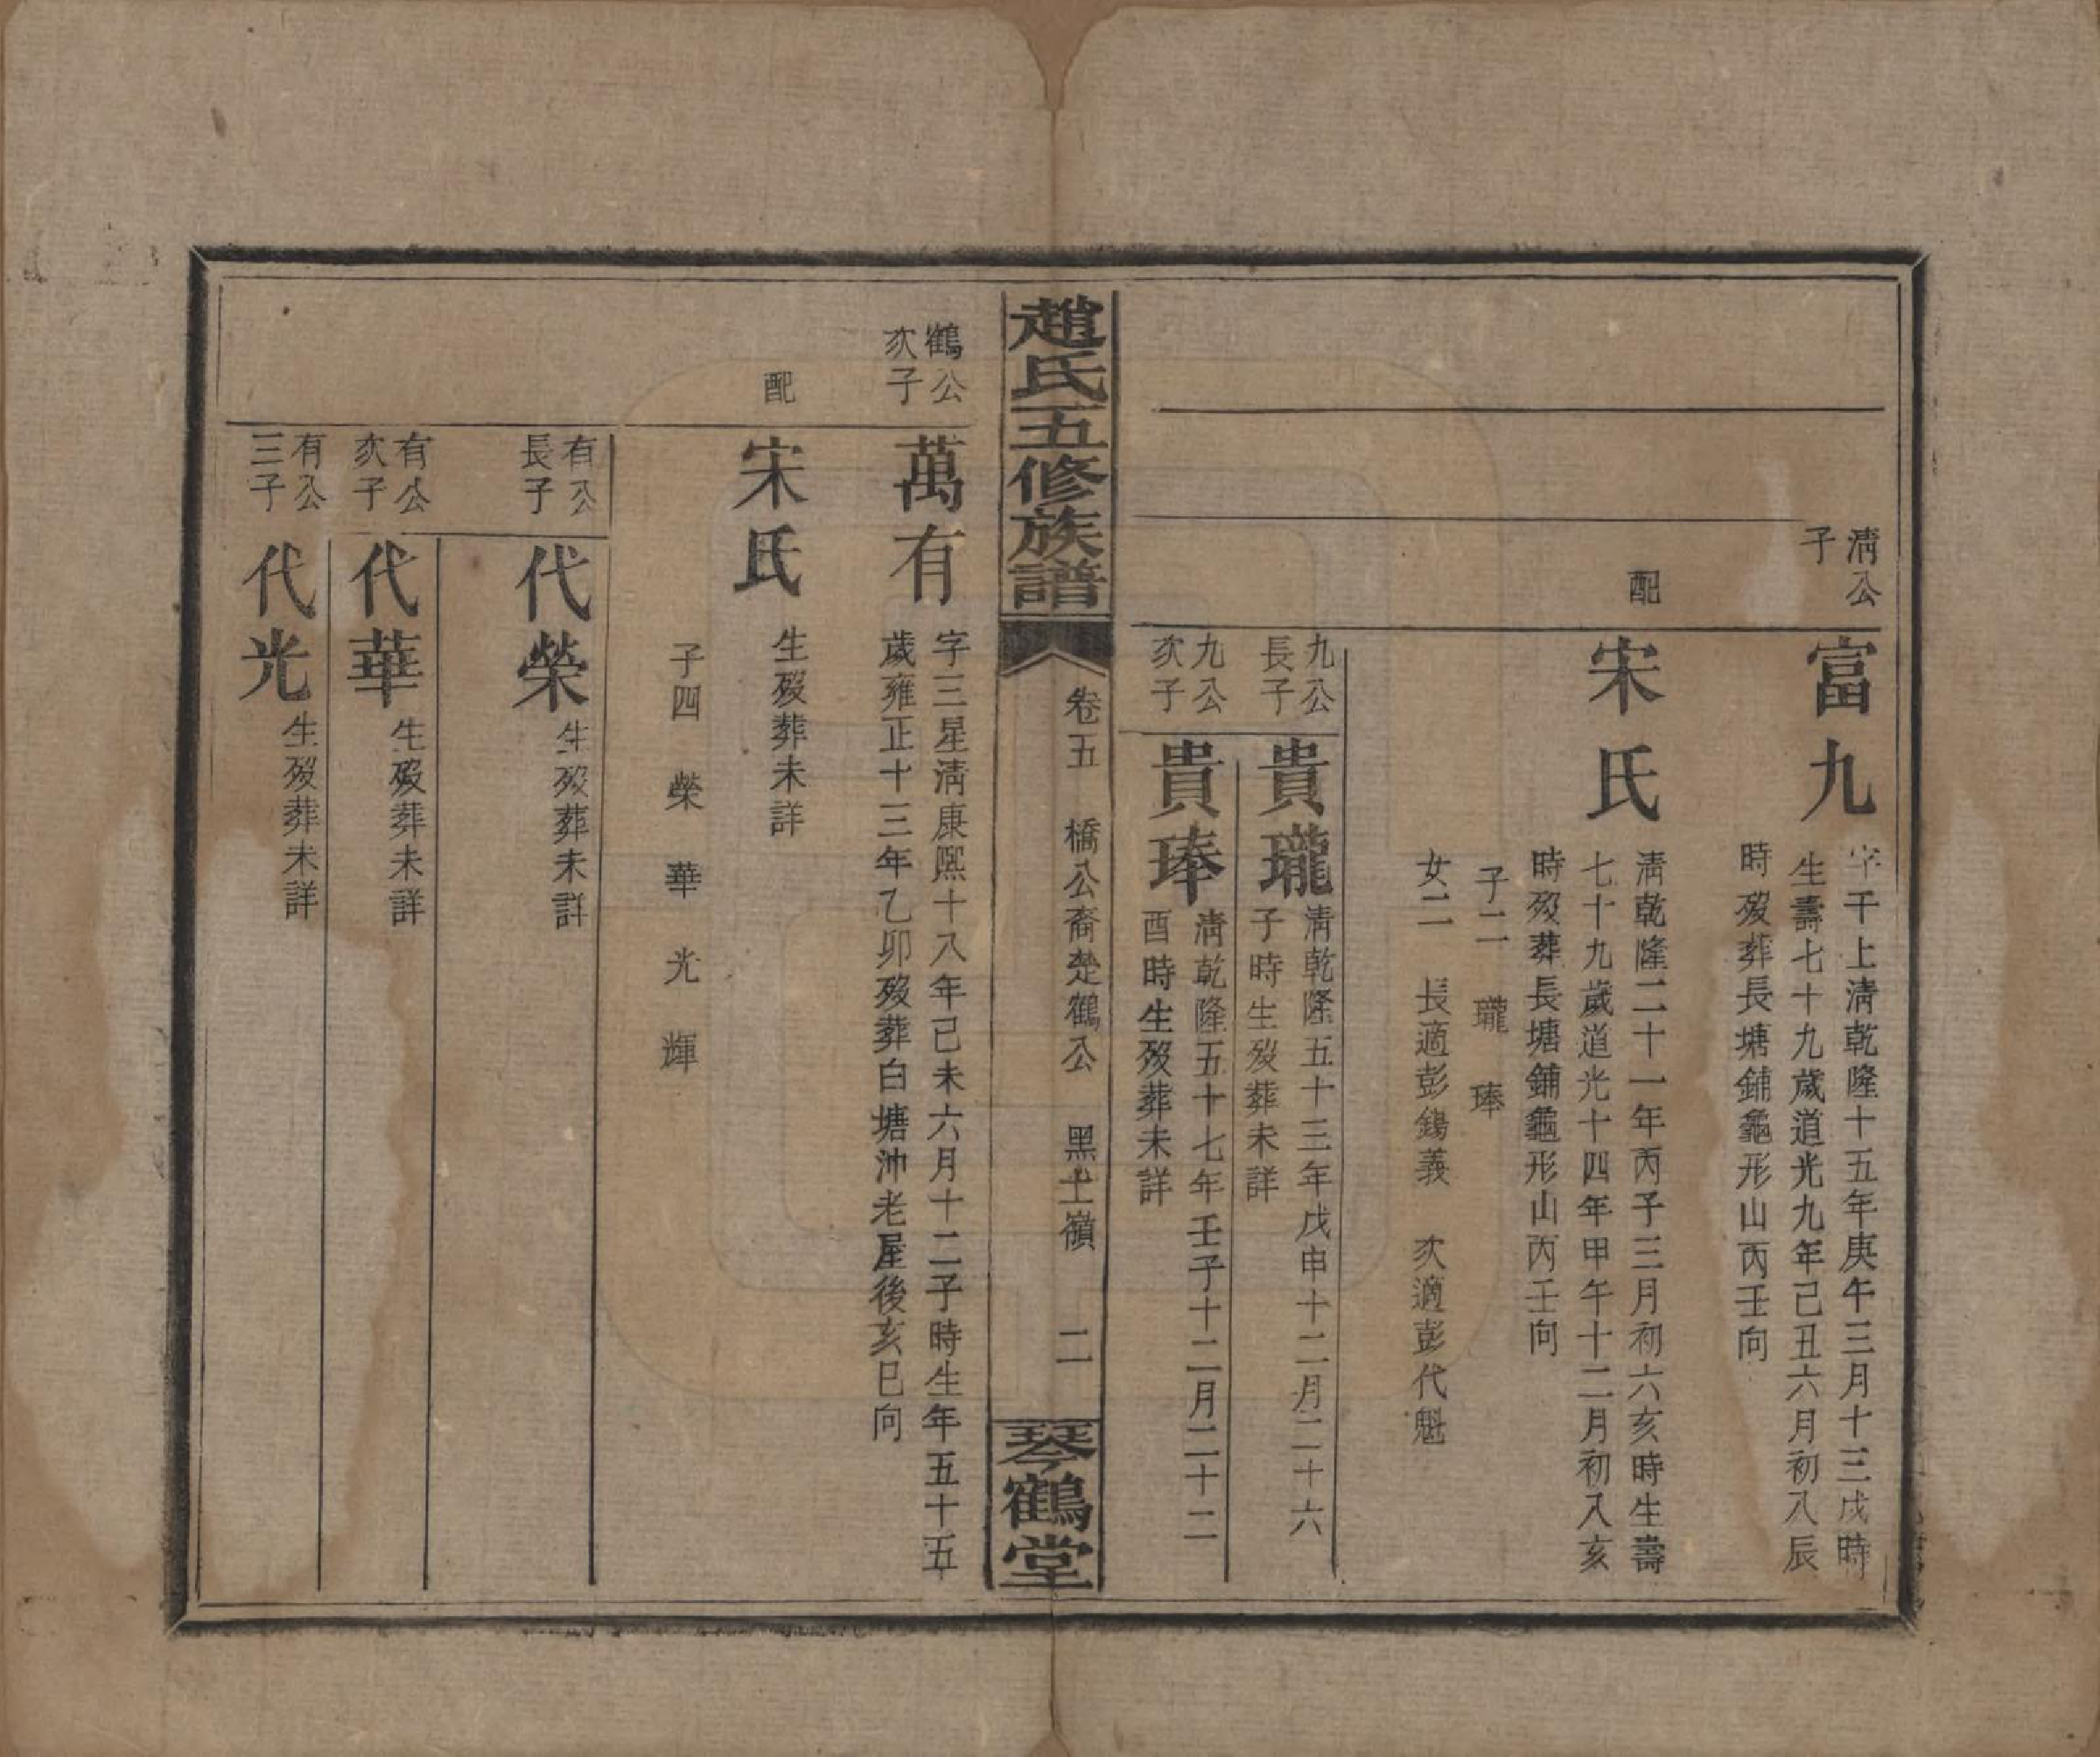 清公
子
富九
字干上清乾隆十五年庚午三月十三戌時
生壽七十九歲道光九年己丑六月初八辰
時歿葬長塘鋪龜形山丙壬向
配
宋氏
清乾隆二十一年丙子三月初六亥時生壽
七十九歲道光十四年甲午十二月初八亥
時歿葬長塘鋪龜形山丙壬向
子二 瓏 琫
女二 長適彭錫義 次適彭代魁
九公
長子
貴瓏
清乾隆五十三年戊申十二月二十六
子時生歿葬未詳
九公
次子
貴琫
清乾隆五十七年壬子十二月二十二
酉時生歿葬未詳
趙氏五修族譜
卷五 橋公裔楚鶴公 黑土嶺 二
琴鶴堂
鶴公
次子
萬有
字三星清康熙十八年己未六月十二子時生年五十五
歲雍正十三年乙卯歿葬白塘沖老屋後亥巳向
配
宋氏
生歿葬未詳
子四 榮 華 光 輝
有公
長子
代榮
生歿葬未詳
有公
次子
代華
生歿葬未詳
有公
三子
代光
生歿葬未詳